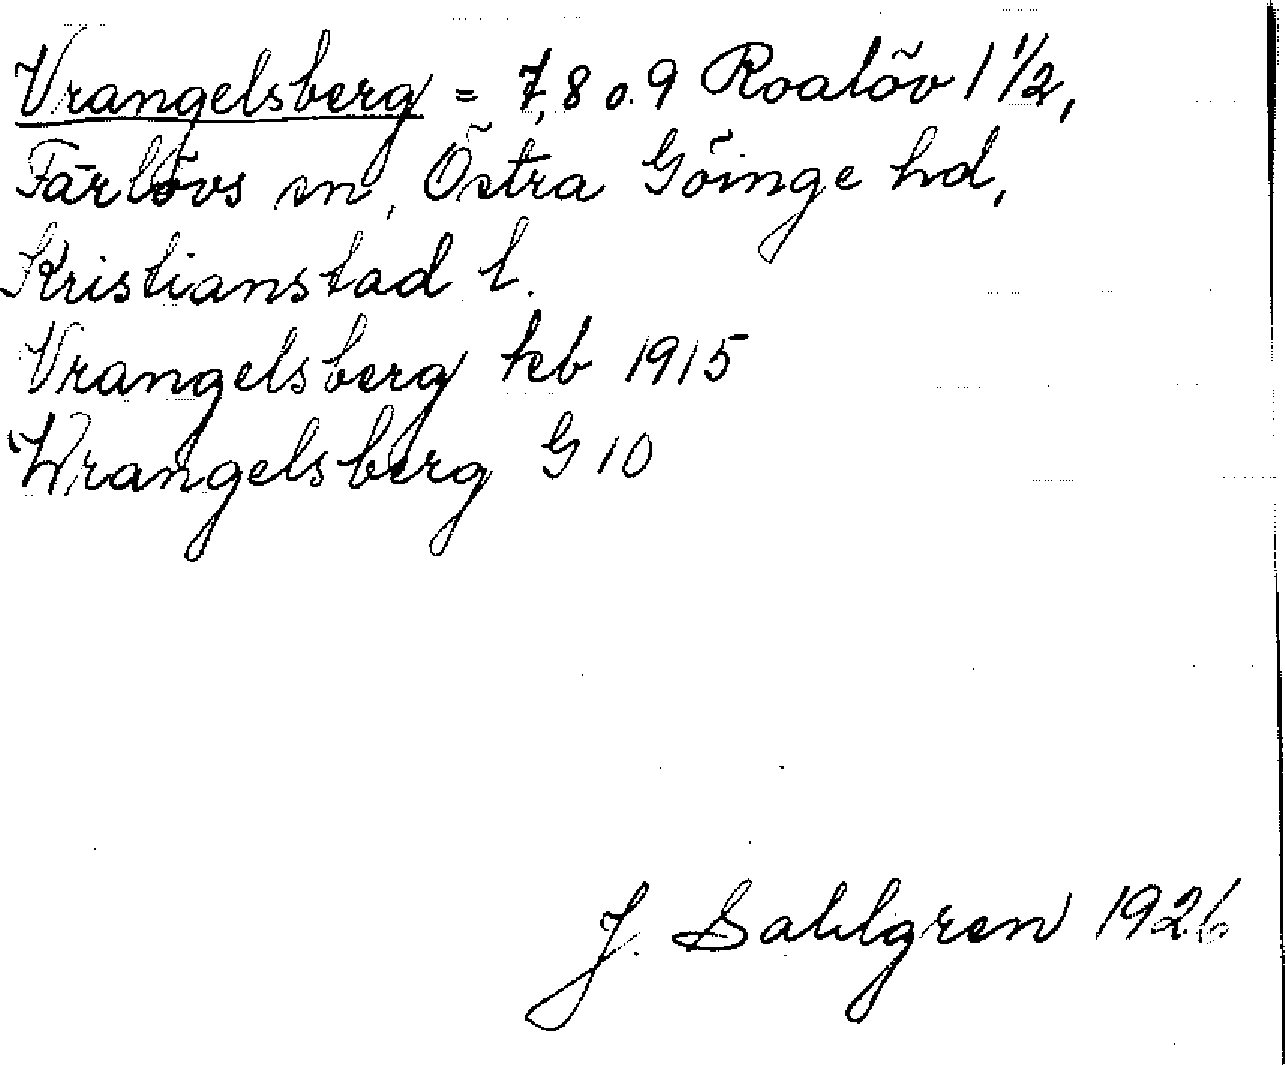 Vrangelsberg = 7, 8 o. 9 Roalöv 1 1/2,
Färlövs sn, Östra Göinge hd,
Kristianstad l.
Vrangelsberg kb 1915
Wrangelsberg G 10
J. Sahlgren 1926